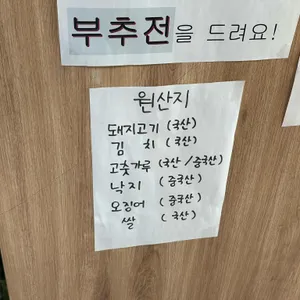 부추전을 드려요!
원산지
돼지고기 (국산)
김 치 (국산)
고춧가루 (국산/중국산)
낙지 (중국산)
오징어 (중국산)
쌀 (국산)